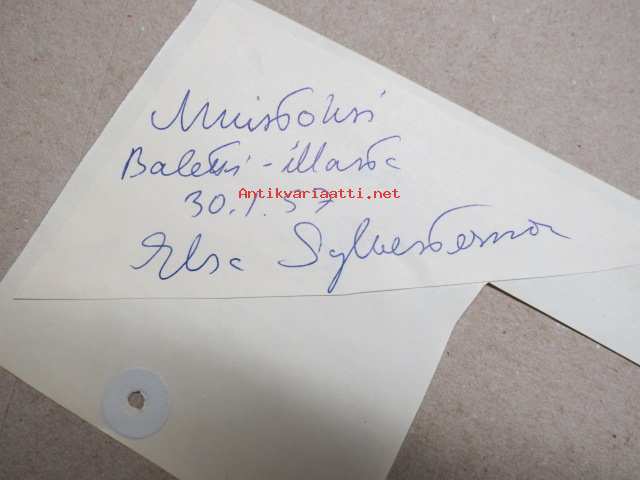 Muistoksi
Baletti-illasta
Antikvariaatti.net
30.1.57
Elsa Sylvestersson